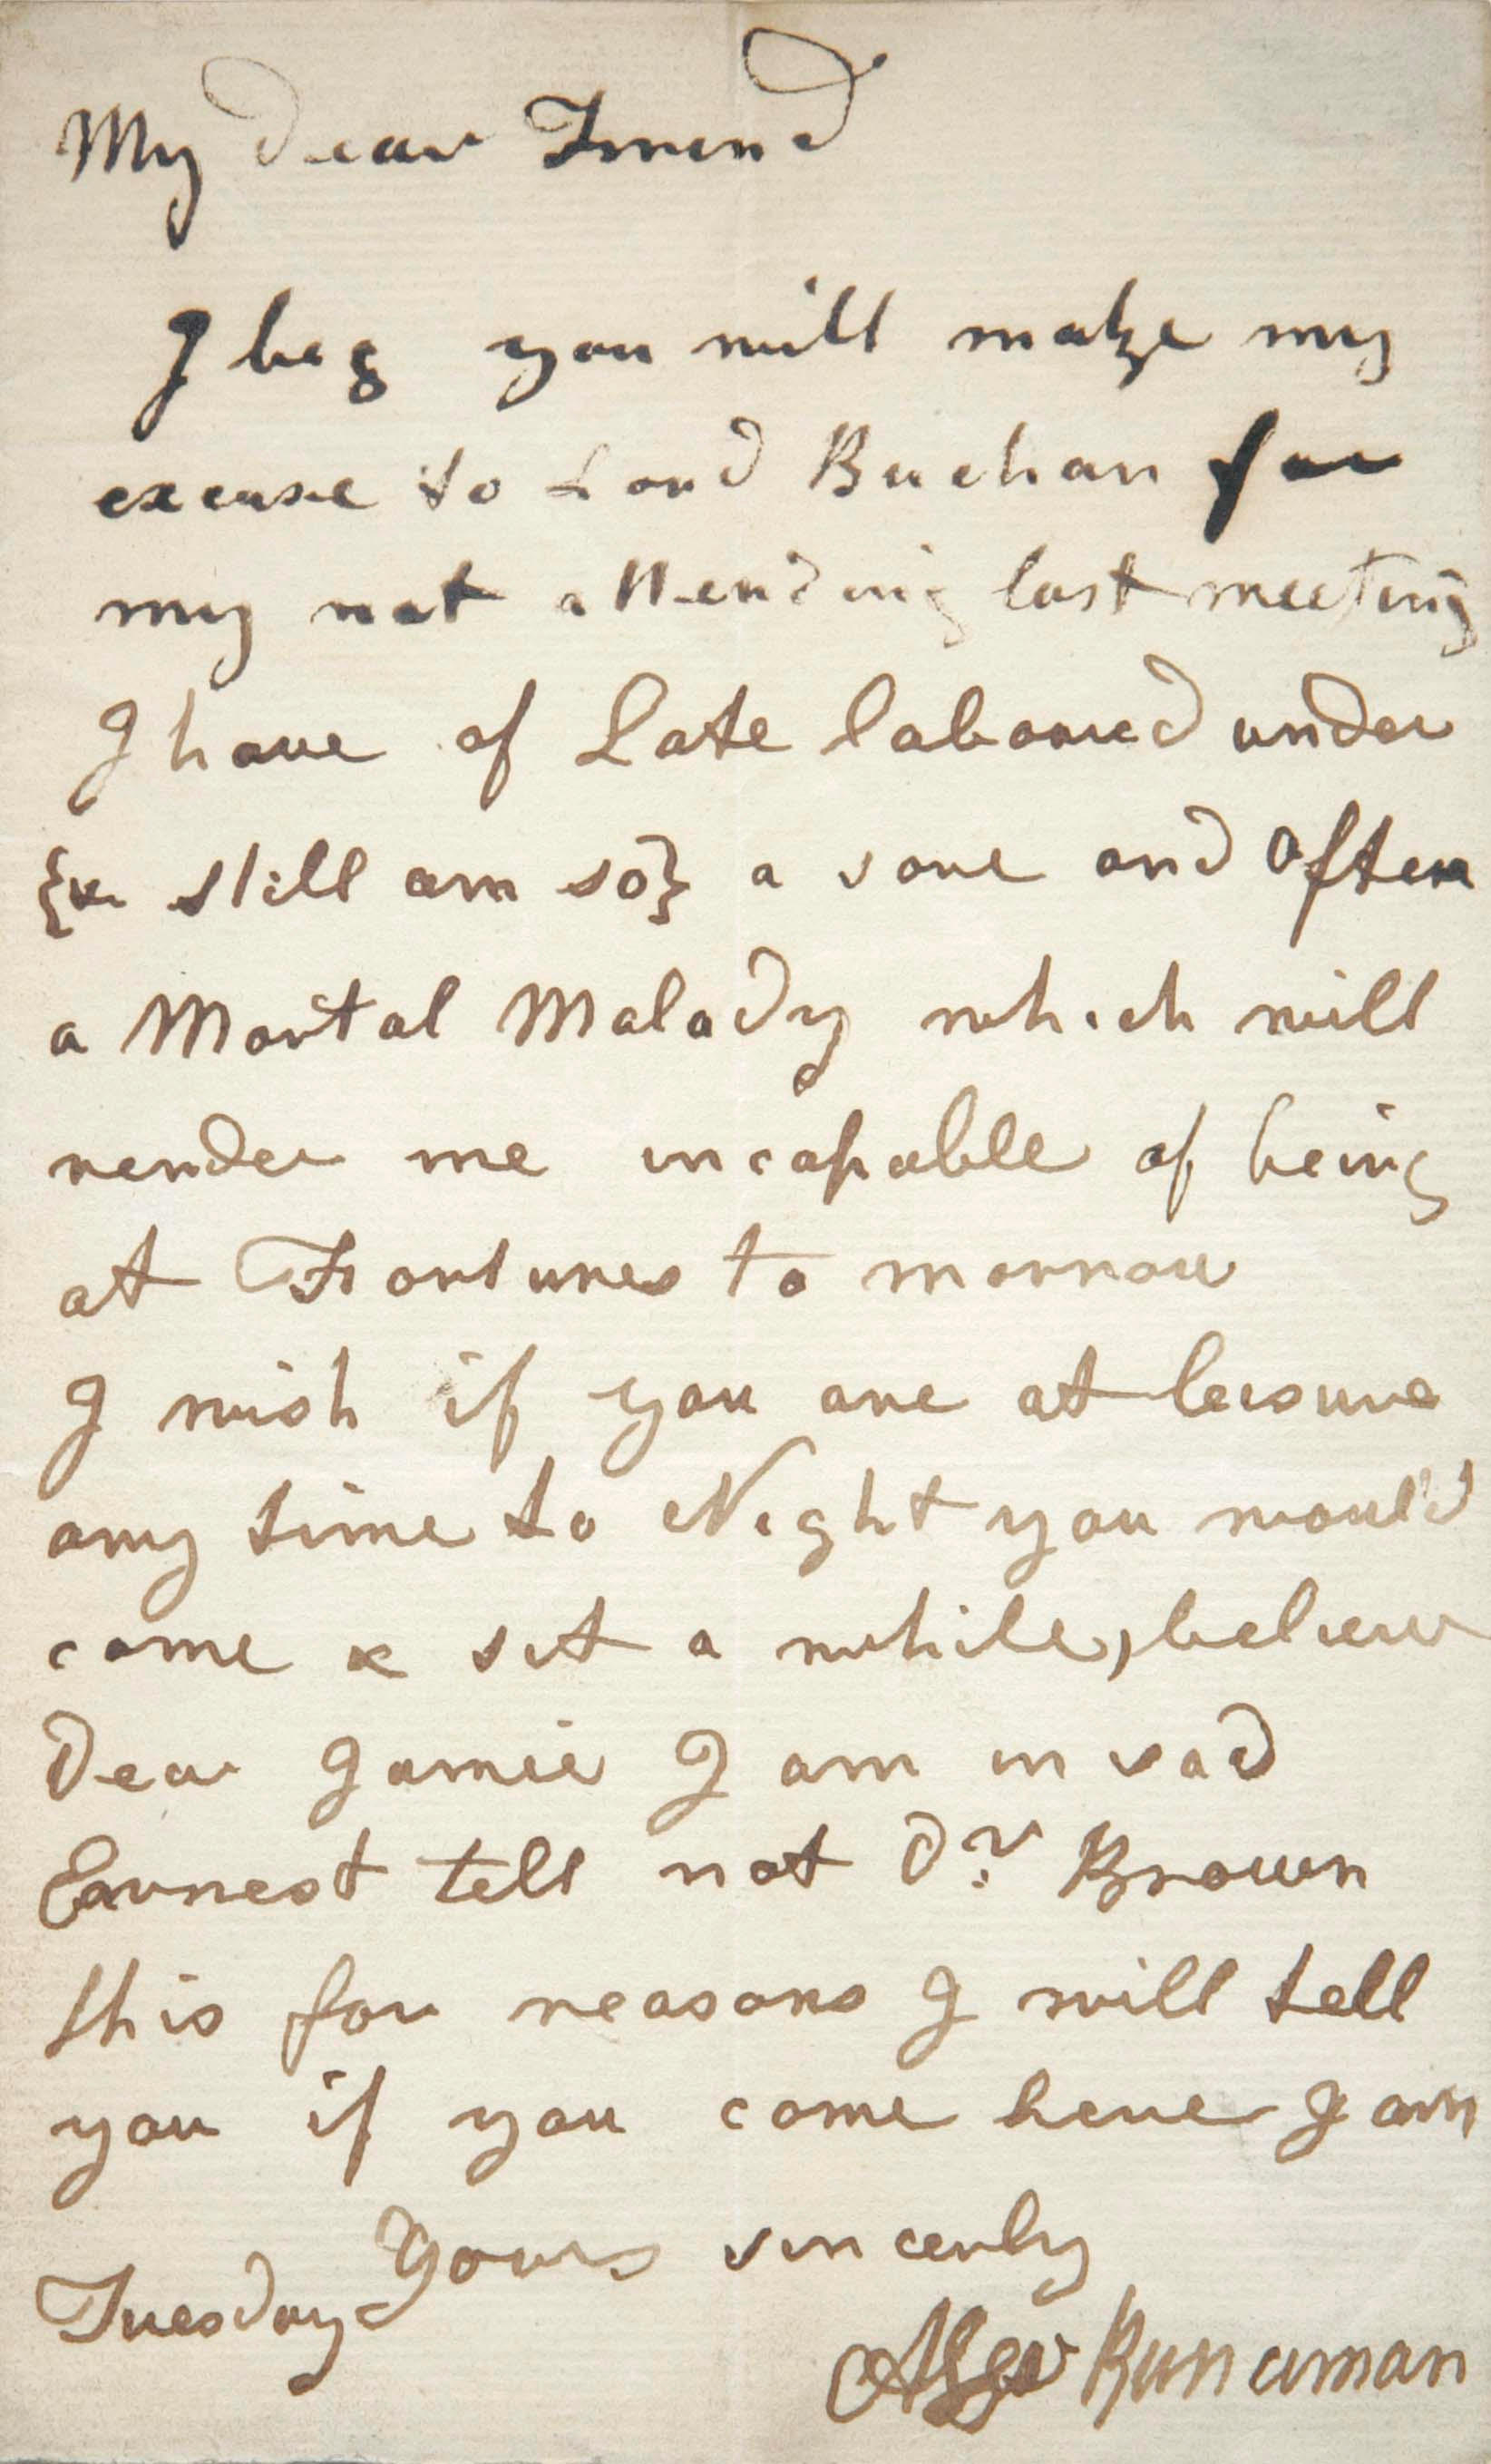 My Dear Friend
I beg you will make my
excuse to Lord Buchan for
my not attending last meeting
I have of Late laboured under
{& still am so} a sore and often
a Mortal Malady which will
render me incapable of being
at Fortunes to morrow
I wish if you are at leisure
any time to Night you would
come & sit a while, believe
Dear Jamie I am in sad
Earnest tell not Dr. Brown
this for reasons I will tell
you if you come here I am
Yours sincerly
Tuesday
Runciman